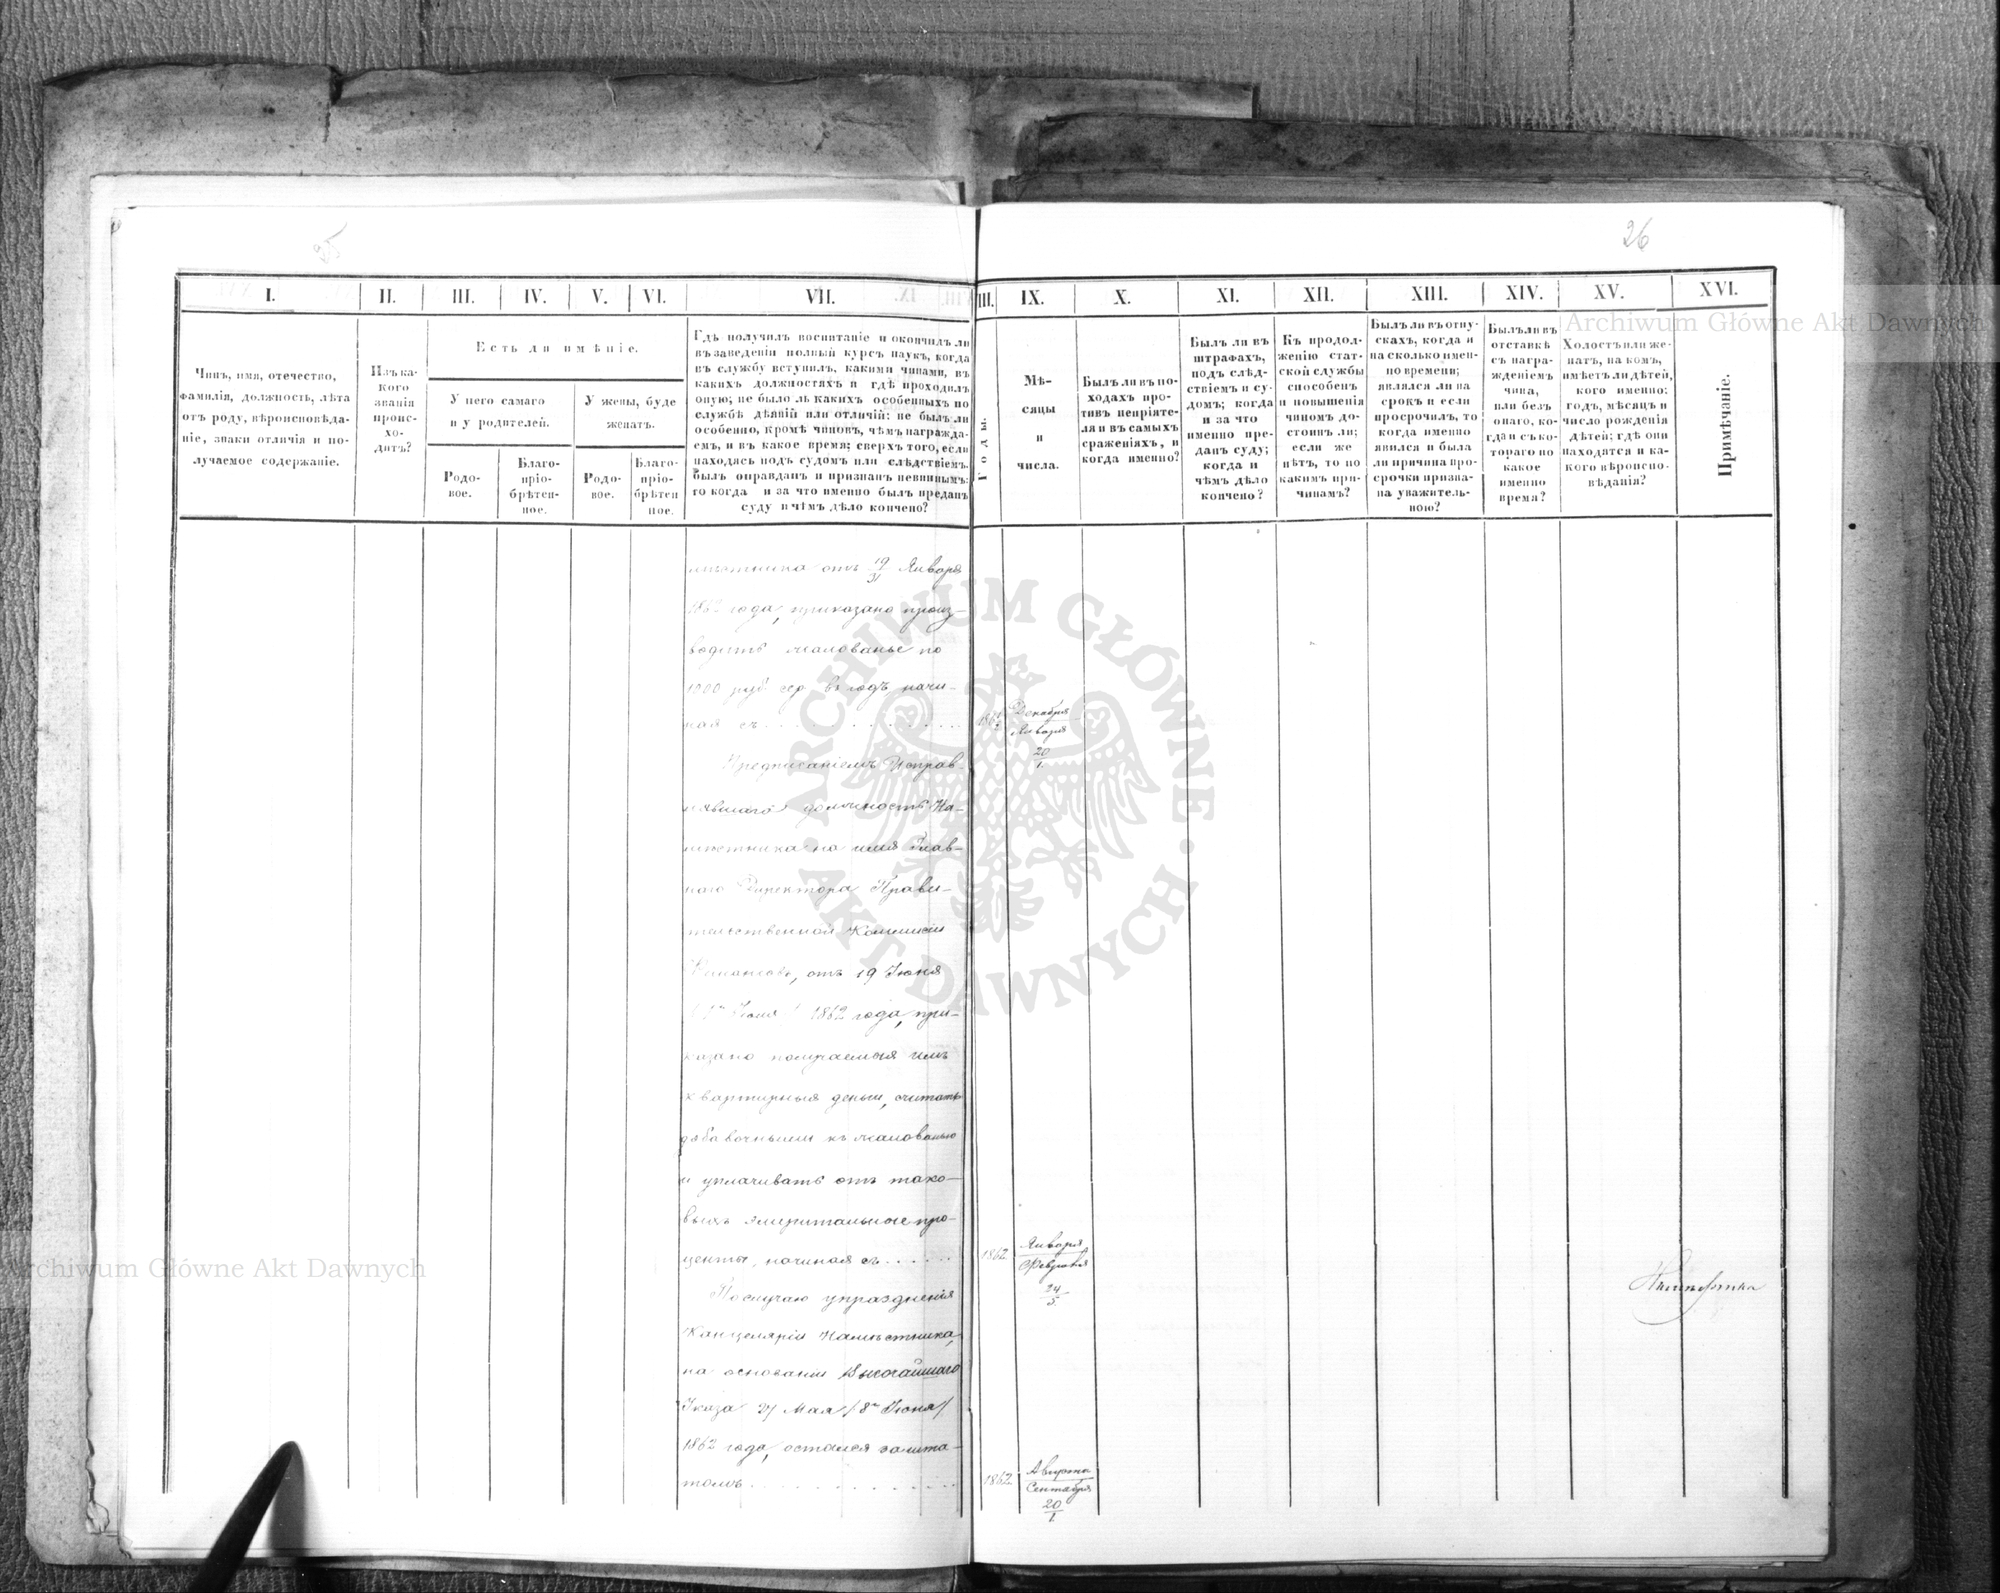 26
I.
II.
III.
IV.
V.
VI.
VII.
III.
IX.
X.
XI.
XII.
XIII.
XIV.
XV.
XVI.
Чинъ, имя, отечество,
фамилія, должность, лѣта
отъ роду, вѣроисповѣда-
ніе, знаки отличія и по-
лучаемое содержаніе.
Изъ ка-
кого
званія
проис-
хо-
дитъ?
Есть ли имѣніе.
У него самаго
и у родителей.
У жены, буде
женатъ.
Родо-
вое.
Благо-
пріо-
брѣтен-
ное.
Родо-
вое.
Благо-
пріо-
брѣтен
ное.
Гдѣ получилъ воспитаніе и окончилъ ли
въ заведеніи полный курсъ наукъ, когда
въ службу вступилъ, какими чинами, въ
какихъ должностяхъ и гдѣ проходилъ
оную; не было ль какихъ особенныхъ по
службѣ дѣяній или отличій; не былъ ли
особенно, кромѣ чиновъ, чѣмъ награжда-
емъ, и въ какое время; сверхъ того, если
находясь подъ судомъ или слѣдствіемъ
былъ оправданъ и признанъ невиннымъ:
то когда и за что именно былъ преданъ
суду и чѣмъ дѣло кончено?
Годы.
Мѣ-
сяцы
и
числа.
Былъ ли въ по-
ходахъ про-
тивъ непріяте-
ля и въ самыхъ
сраженіяхъ, и
когда именно?
Былъ ли въ
штрафахъ,
подъ слѣд-
ствіемъ и су-
домъ; когда
и за что
именно пре-
данъ суду;
когда и
чѣмъ дѣло
кончено?
Къ продол-
женію стат-
ской службы
способенъ
и повышенія
чиномъ до-
стоинъ ли;
если же
нѣтъ, то по
какимъ при-
чинамъ?
Былъ ли въ отпу-
скахъ, когда и
на сколько имен-
но времени;
являлся ли на
срокъ и если
просрочилъ, то
когда именно
явился и была
ли причина про-
срочки призна-
на уважитель-
ною?
Былъ ли въ
отставкѣ
съ награ-
жденіемъ
чина,
или безъ
онаго, ко-
гда и съ ко-
тораго по
какое
именно
время?
Холостъ или же-
натъ, на комъ,
имѣетъ ли дѣтей,
кого именно:
годъ, мѣсяцъ и
число рожденія
дѣтей; гдѣ они
находятся и ка-
кого вѣроиспо-
вѣданія?
Примѣчаніе.
мѣстника отъ 19/31 Января
1862 года, приказано произ-
водить жалованье по
1000 руб. сер. въ годъ, начи-
ная съ
Декабря
Января
20
1.
Предписаніемъ Исправ-
лявшаго должность На-
мѣстника на имя Глав-
наго Директора Прави-
тельственной Коммисіи
Финансовъ, отъ 19 Іюня
1862 года, при-
казано получаемыя имъ
квартирныя деньги, считать
добавочными къ жалованью
и уплачивать отъ тако-
выхъ эмеритальные про-
центы, начиная съ
1862.
Января
Февраля
24
5.
По случаю упраздненія
Канцеляріи Намѣстника,
на основаніи Высочайшаго
Указа 27 Мая / 8го Іюня /
1862 года, остался за шта-
томъ
1862.
Августа
Сентября
20
1.
Archiwum Główne Akt Dawnych
Archiwum Główne Akt Dawnych
ARCHIWUM GŁÓWNE · AKT DAWNYCH ·